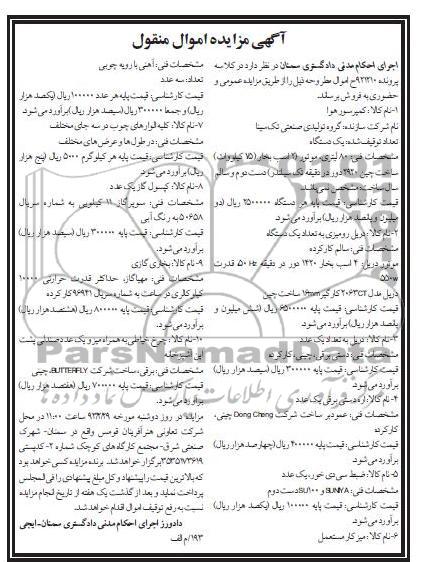 آگهی مزایده اموال منقول
اجرای احکام مدنی دادگستری سمنان در نظر دارد در کلاسه
پرونده ۹۲۱۳۱۰ح اموال مطروحه ذیل را از طریق مزایده عمومی و
حضوری به فروش برساند.
۱-نام کالا: کمپرسور هوا
نام شرکت سازنده: گروه تولیدی صنعتی تک سینا
تعداد توقیف شده: یک دستگاه
مشخصات فنی: ۸۰ لیتری، موتور (۲ اسب بخار (۱/۵ کیلووات)
ساخت چین ۲۹۲۰ دور در دقیقه تک سیلندر) دست دوم و سالم
سال ساخت: مشخص نمی باشد.
قیمت کارشناسی: قیمت پایه هر دستگاه ۲۵۰۰۰۰۰ ریال (دو
میلیون و پانصد هزار ریال) برآورد می شود.
۲-نام کالا: دریل رومیزی به تعداد یک دستگاه
مشخصات فنی: سالم کارکرده
موتور دریل: ۴ اسب بخار ۱۴۲۰ دور در دقیقه 50 HZ، قدرت
۵۵۰W
دریل مدل ۲۰۶۳CT کارگیر ۱۶mm ساخت چین
قیمت کارشناسی: قیمت پایه ۶۵۰۰۰۰۰ ریال (شش میلیون و
پانصد هزار ریال) برآورد می شود.
۳-نام کالا: دریل به تعداد یک عدد
مشخصات فنی: دستی برقی، چینی، کارکرده
قیمت کارشناسی: قیمت پایه ۳۰۰۰۰۰ ریال (سیصد هزار ریال)
برآورد می شود.
۴-نام کالا: اره دستی برقی یک عدد
مشخصات فنی: عمودبر ساخت شرکت Dong Cheng چینی،
کارکرده
قیمت کارشناسی: قیمت پایه ۴۰۰۰۰۰ ریال (چهارصد هزار ریال)
برآورد می شود.
۵-نام کالا: ضبط سی دی خور، یک عدد
مشخصات فنی: SUNNYA و SU/100 دست دوم
قیمت کارشناسی: قیمت پایه ۱۰۰۰۰۰ ریال (یکصد هزار ریال)
برآورد می شود.
۶-نام کالا: میز کار مستعمل
مشخصات فنی: آهنی با رویه چوبی
تعداد: سه عدد
قیمت کارشناسی: قیمت پایه هر عدد ۱۰۰۰۰۰ ریال (یکصد هزار
ریال) و جمعا ۳۰۰۰۰۰ ریال (سیصد هزار ریال) برآورد می شود.
۷-نام کالا: کلیه الوارهای چوب در سه جای مختلف
مشخصات فنی: در طول ها و عرض های مختلف
قیمت کارشناسی: قیمت پایه هر کیلوگرم ۵۰۰۰ ریال (پنج هزار
ریال) برآورد می شود.
۸-نام کالا: کپسول گاز یک عدد
مشخصات فنی: سوپرگاز ۱۱ کیلویی به شماره سریال
۵۰۶۵۸ به رنگ آبی
قیمت کارشناسی: قیمت پایه ۳۰۰۰۰۰ ریال (سیصد هزار ریال)
برآورد می شود.
۹-نام کالا: بخاری گازی
مشخصات فنی: مهیاگاز، حداکثر قدرت حرارتی ۱۰۰۰۰
کیلوکالری در ساعت به شماره سریال ۹۶۹۴۱ کارکرده
قیمت کارشناسی: قیمت پایه ۸۰۰۰۰۰ ریال (هشتصد هزار ریال)
برآورد می شود.
۱۰-نام کالا: چرخ خیاطی به همراه میز و یک عدد صندلی پشت
این آشپزخانه
مشخصات فنی: برقی، ساخت شرکت BUTTERFLY، چینی
قیمت کارشناسی: قیمت پایه ۷۰۰۰۰۰ ریال (هفتصد هزار ریال)
برآورد می شود.
مزایده در روز دوشنبه مورخه ۹۳/۴/۲۹ ساعت ۱۱:۰۰ در محل
شرکت تعاونی هنرآفرینان قومس واقع در سمنان- شهرک
صنعتی شرق- مجتمع کارگاه های کوچک شماره ۲- کدپستی
۳۵۳۵۱۷۳۶۱۹ برگزار خواهد شد. برنده مزایده کسی خواهد بود
که بالاترین قیمت را پیشنهاد و کل مبلغ پیشنهادی را فی المجلس
پرداخت نماید و بعد از گذشت یک هفته از تاریخ انجام مزایده
نسبت به رفع توقیف اموال اقدام خواهد شد.
دادورز اجرای احکام مدنی دادگستری سمنان-ایجی
۱۹۳/م الف
ParsNamadData